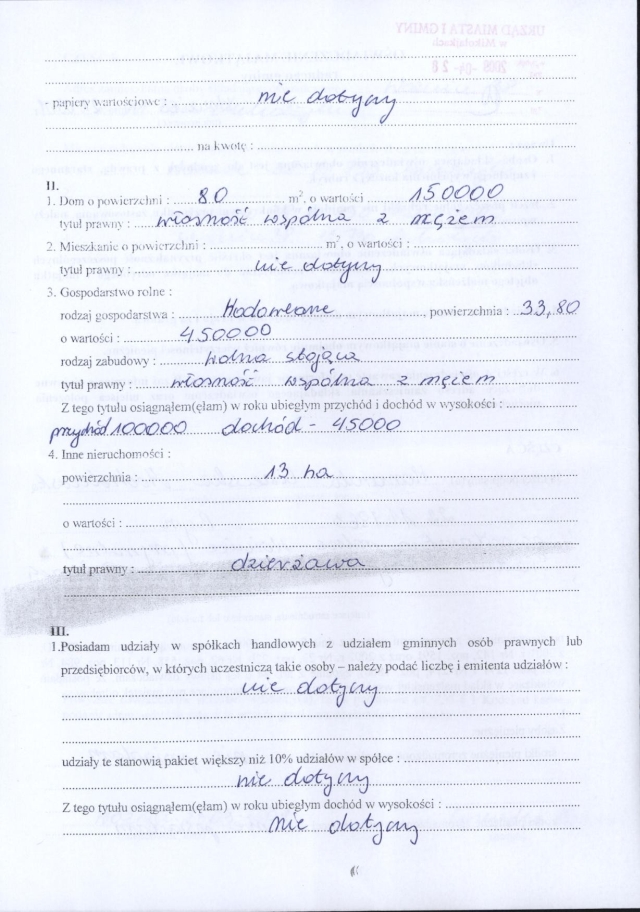 - papiery wartościowe : nie dotyczy
na kwotę :
II.
1. Dom o powierzchni : 80 m², o wartości 150000
tytuł prawny : własność wspólna z mężem
2. Mieszkanie o powierzchni : m², o wartości :
tytuł prawny : nie dotyczy
3. Gospodarstwo rolne :
rodzaj gospodarstwa : Hodowlane, powierzchnia : 33,80
o wartości : 450000
rodzaj zabudowy : wolno stojąca
tytuł prawny : własność wspólna z mężem
Z tego tytułu osiągnąłem(ęłam) w roku ubiegłym przychód i dochód w wysokości :
przychód 100000 dochód - 45000
4. Inne nieruchomości :
powierzchnia : 13 ha
o wartości :
tytuł prawny : dzierżawa
III.
1.Posiadam udziały w spółkach handlowych z udziałem gminnych osób prawnych lub
przedsiębiorców, w których uczestniczą takie osoby – należy podać liczbę i emitenta udziałów :
nie dotyczy
udziały te stanowią pakiet większy niż 10% udziałów w spółce :
nie dotyczy
Z tego tytułu osiągnąłem(ęłam) w roku ubiegłym dochód w wysokości :
nie dotyczy